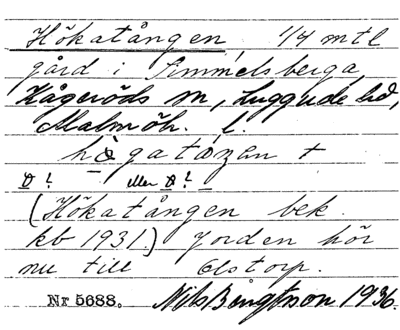 Hökatången, 1/4 mtl
gård i Simmelsberga,
Kågeröds sn, Luggude hd,
Malmöh. l.
hògatåzen +
ò? eller ò?
(Hökatången bek.
kb 1931.) Jorden hör
nu till Olstorp.
Nr 5688. Nils Bengtsson 1936.